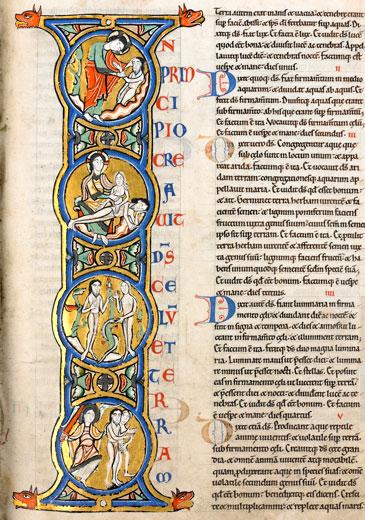 N
PRIN
CI
PIO
CRE
A
UIT
DS
CE
LV
ET
TE
R
R
A
M
Terra autem erat inanis & uacua & tenebre erant
sup faciē abissi & sps dī ferebatur sup aquas. Di
xitq; ds. fiat lux. Et facta ē lux. Et uidit ds lucē
quod esset bona & diuisit lucē ac tenebras. Appel
lauitq; lucē diem & tenebras noctē. Factumq; ē
uespe & mane dies unus. II
Dixit quoq; ds. Fiat firmamtum in medio
aquarum & diuidat aquas ab aquis. Et
fecit ds firmamtum. Diuisitq; aquas que
erant sub firmamto ab his que erant sup firmamtū.
Et factum ē ita. Vocauitq; ds firmamtum celū.
Et factum ē uespe & mane dies secundus. III
Dixit uero ds. Congregentur aque que
sub celo sunt in locum unum & appa
reat arida. Factumq; ē ita. Et uocauit ds ari
dam terram. congregationesq; aquarum ap
pellauit maria. Et uidit ds qd esset bonum
& ait. Germinet terra herbam uirentē & fa
cientē semen & lignum pomiferum faciens
fructum iuxta genus suum cuius semen in semet
ipso sit sup terram. Et factum ē ita. Et ptulit
terra herbam uirentē & afferentē semen iux
ta genus suū. lignumq; faciens fructum & ha
bens unumquodq; sementē sedm speciē su
am. Et uidit ds qd esset bonum. Factumq; ē ues
pe & mane dies tercius. IIII
Dixit autē ds. fiant luminaria in firma
mto celi & diuidant diē ac noctē & sint
in signa & tempora & dies & annos & lu
ceant in firmamto celi & illuminent terram.
Et factum ē ita. Fecitq; ds duo magna lumina
ria. Luminare maius ut peesset diei & lumina
re minus ut peesset nocti. Et stellas. Et posuit
eas in firmamto celi ut lucerent sup terram
& peessent diei ac nocti & diuiderent lucē ac te
nebras. Et uidit ds qd esset bonum. Et factum ē
uespe & mane dies quartus. V
Dixit etiā ds. Producant aque reptile
anime uiuentis & uolatile sup terram
sub firmamto celi. Creauitq; ds cete gran
dia & omnē animā uiuentē atq; motabilē
quam pduxerant aque in species suas & omne
uolatile secundum genus suum. Et uidit ds qd
esset bonum. benedixitq; eis dicens. Crescite
& multiplicamini & replete aquas maris.